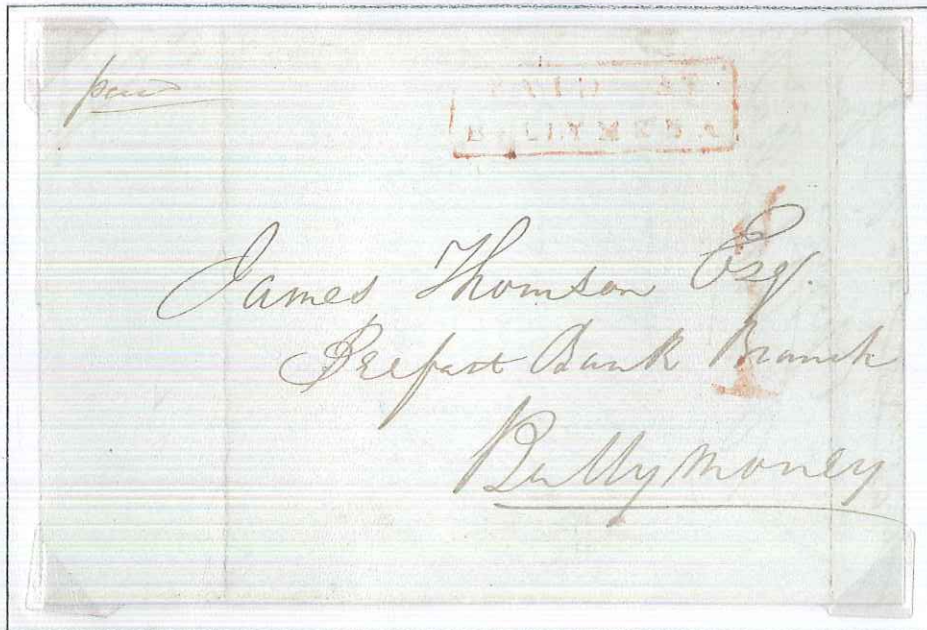 paid
PAID AT
BALLYMENA
1
James Thomson Esq.
Belfast Bank Branch
Ballymoney